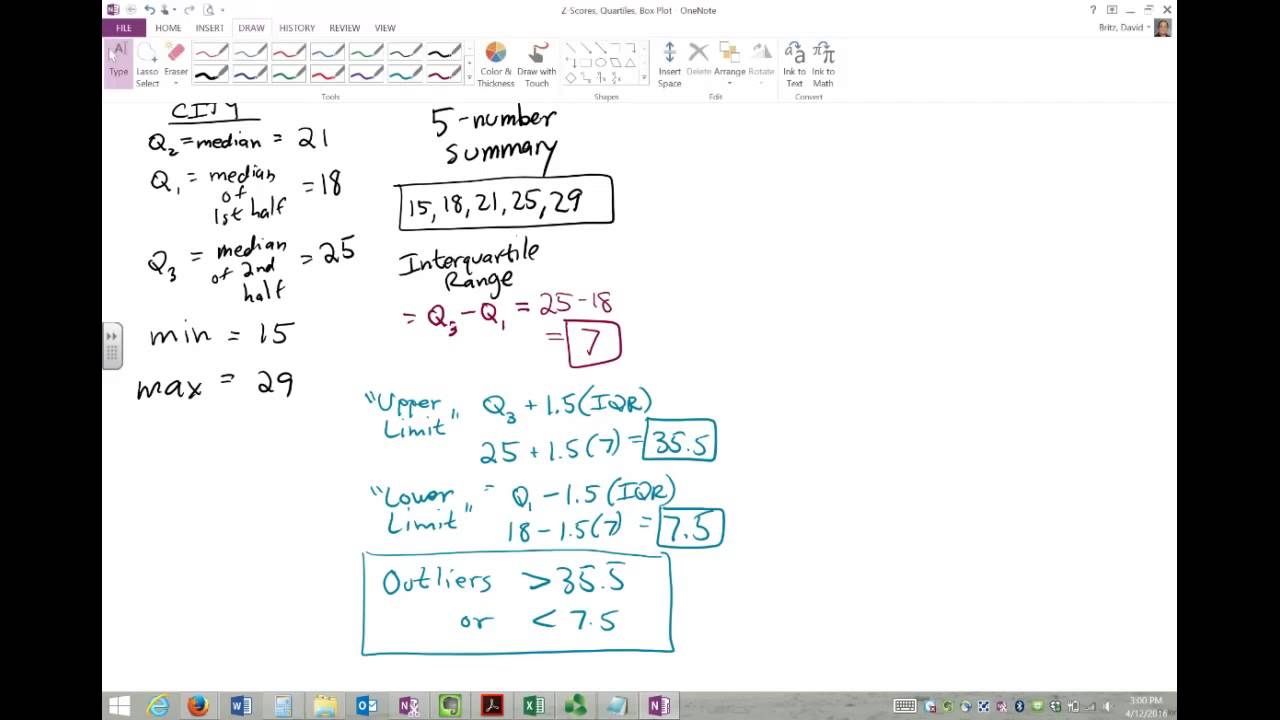 Z-Scores, Quartiles, Box Plot - OneNote
Britz, David
FILE HOME INSERT DRAW HISTORY REVIEW VIEW
Type
Lasso Select
Eraser
Color & Thickness
Draw with Touch
Insert Space
Delete
Arrange
Rotate
Ink to Text
Ink to Math
Tools
Shapes
Edit
Convert
CITY
Q₂ = median = 21
Q₁ = median of 1st half = 18
Q₃ = median of 2nd half = 25
min = 15
max = 29
5-number
summary
15, 18, 21, 25, 29
Interquartile
Range
= Q₃ - Q₁ = 25 - 18
= 7
"Upper Limit" Q₃ + 1.5(IQR)
25 + 1.5(7) = 35.5
"Lower Limit" = Q₁ - 1.5(IQR)
18 - 1.5(7) = 7.5
Outliers > 35.5
or < 7.5
3:00 PM
4/12/2016